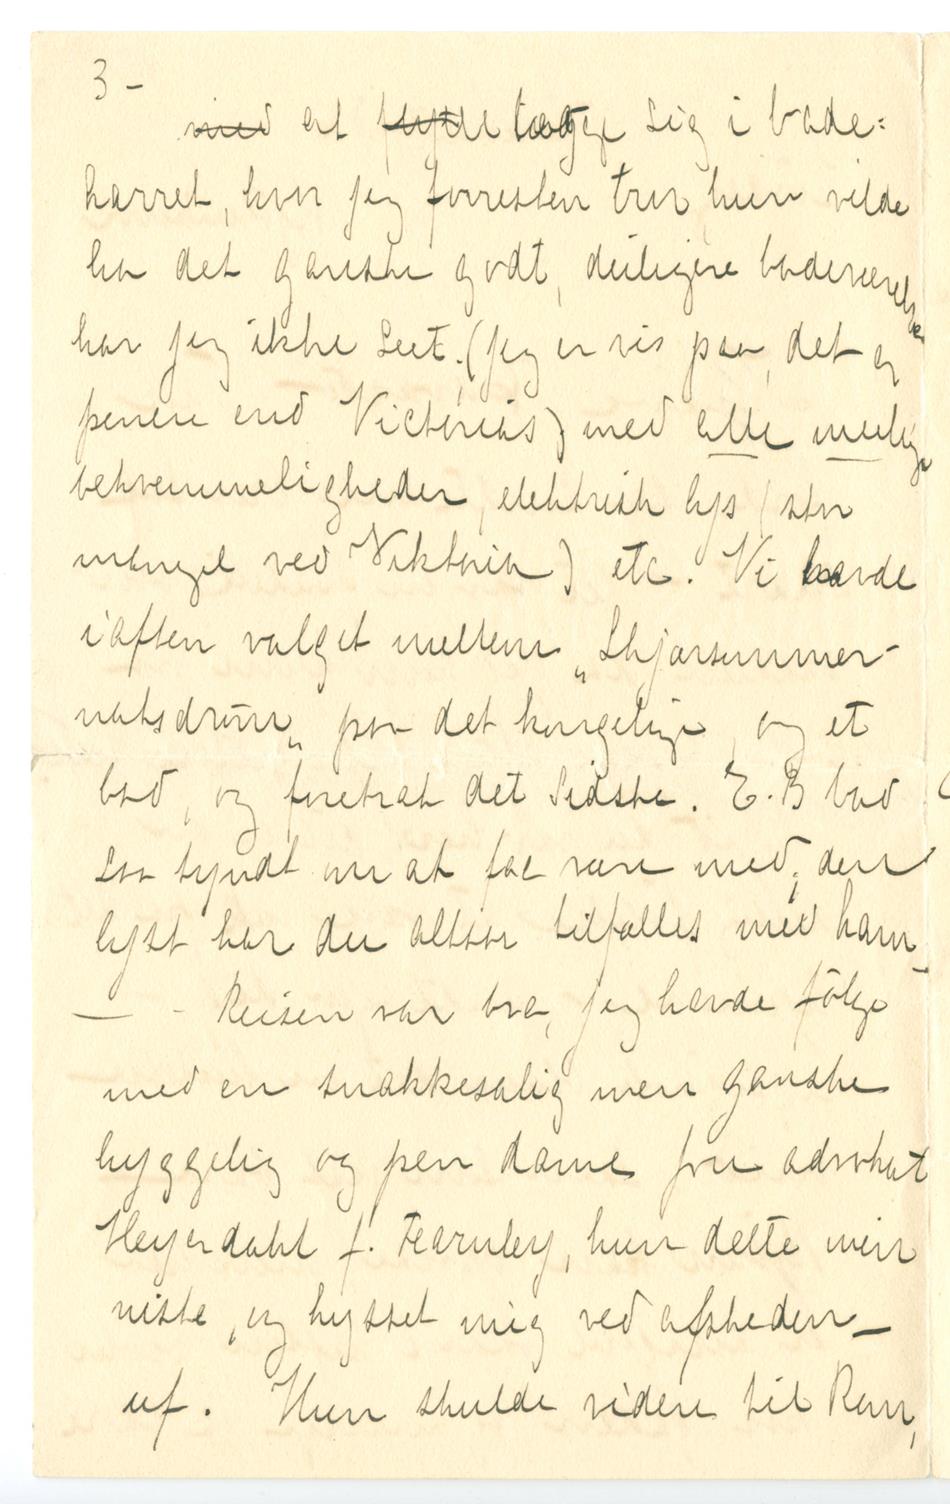 3 –
med at flytte lægge sig i bade=
karret, hvor jeg forresten tror hun vilde
ha det ganske godt, deiligere badeværelse
har jeg ikke seet. (jeg er vis paa, det er
penere end Victorias) med alle mulige
bekvemmeligheder, elektrisk lys (stor
mangel ved Viktoria) etc. Vi havde
iaften valget mellem „Skjærsummer-
natsdrøm„ paa det kongelige, og et
bad, og foretrak det sidste. E.B bad
saa tyndt om at faa være med; den
lyst har du altsaa tilfælles med ham.
— - Reisen var bra, jeg havde følge
med en snakkesalig men ganske
hyggelig og pen dame fru advokat
Heyerdahl f. Fearnley, hun dette
niste, og kysset mig ved afskeden –
uf. Hun skulde videre til Rom,